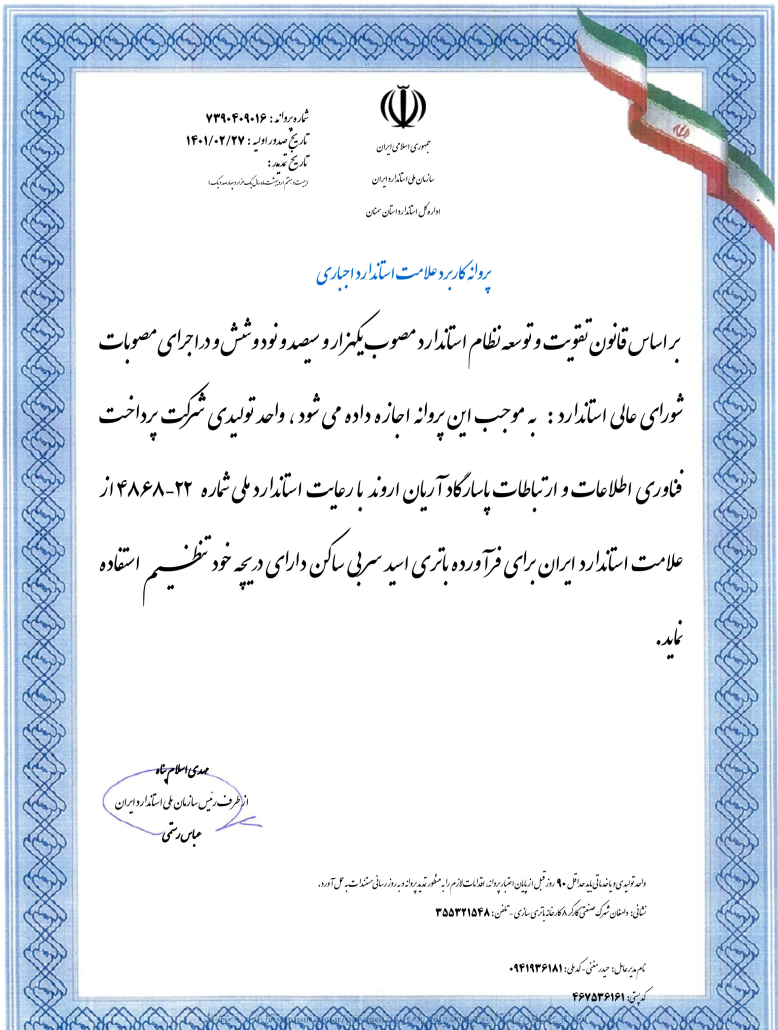 جمهوری اسلامی ایران
سازمان ملی استاندارد ایران
اداره کل استاندارد استان سمنان
شماره پروانه : ۷۳۹۰۴۰۹۰۱۶
تاریخ صدور اولیه : ۱۴۰۱/۰۲/۲۷
تاریخ تمدید :
(بیست و هفتم اردیبهشت ماه سال یک هزار و چهارصد و یک)
پروانه کاربرد علامت استاندارد اجباری
بر اساس قانون تقویت و توسعه نظام استاندارد مصوب یکهزار و سیصد و نود و شش و در اجرای مصوبات
شورای عالی استاندارد : به موجب این پروانه اجازه داده می شود ، واحد تولیدی شرکت پرداخت
فناوری اطلاعات و ارتباطات پاسارگاد آریان اروند با رعایت استاندارد ملی شماره ۲۲-۴۸۶۸ از
علامت استاندارد ایران برای فرآورده باتری اسید سربی ساکن دارای دریچه خود تنظیم استفاده
نماید.
مهدی اسلام پناه
از طرف رئیس سازمان ملی استاندارد ایران
عباس رستمی
واحد تولیدی و یا خدماتی باید حداقل ۹۰ روز قبل از پایان اعتبار پروانه، اقدامات لازم را به منظور تمدید پروانه و به روز رسانی مستندات به عمل آورد.
نشانی: دامغان شهرک صنعتی کارگر ۸ کارخانه باتری سازی - تلفن: ۳۵۵۳۲۱۵۴۸
نام مدیر عامل: حیدر - کد ملی: ۰۹۴۱۹۳۶۱۸۱
کد پستی: ۴۶۷۵۳۶۱۶۱